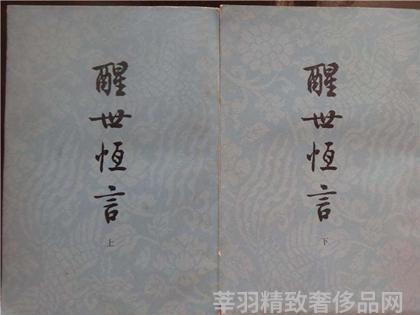 醒世恆言
上
醒世恆言
下
莘羽精致奢侈品网